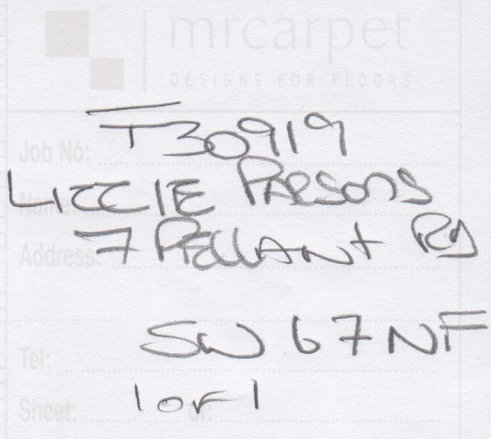 mrcarpet
DESIGNS FOR FLOORS
Job No: T30919
Name: LIZZIE PARSONS
Address: 7 PELLANT RD
SW6 7NF
Tel:
Sheet: 1 of: 1